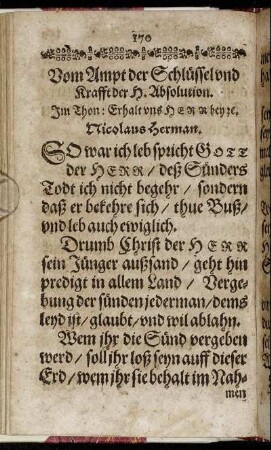 170
Vom Ampt der Schlüssel vnd
Krafft der H. Absolution.
Im Thon: Erhalt vns HERR bey ze.
Nicolaus Herman.
SO war ich leb spricht GOTT
der HERR / deß Sünders
Todt ich nicht begehr / sondern
daß er bekehre sich / thue Buß /
vnd leb auch ewiglich.
Drumb Christ der HERR
sein Jünger außsand / geht hin
predigt in allem Land / Verge-
bung der sünden jederman / dems
leyd ist / glaubt / vnd wil ablahn.
Wem jhr die Sünd vergeben
werd / soll jhr loß seyn auff dieser
Erd / wem jhr sie behalt im Nah-
men